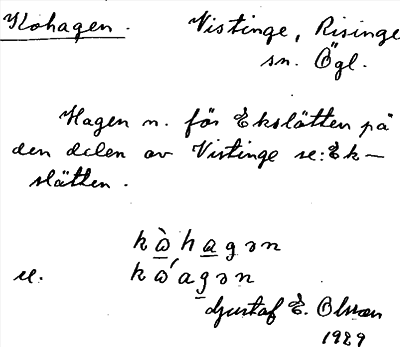 Kohagen.
Vistinge, Risinge
sn. Ögl.
Hagen n. för Ekslätten på
den delen av Vistinge se: Ek-
slätten.
kὼhagən
el. kώagən
Gustaf E. Olsson
1929